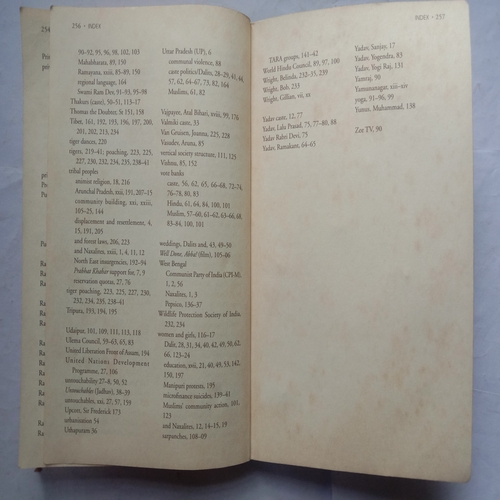 256 • INDEX
90–92, 95, 96, 98, 102, 103
Mahabharata, 89, 150
Ramayana, xxii, 85–89, 150
regional language, 164
Swami Ram Dev, 91–93, 95–98
Thakurs (caste), 50–51, 113–17
Thomas the Doubter, St, 151, 158
Tibet, 161, 192, 193, 196, 197, 200,
201, 202, 213, 234
tiger dances, 220
tigers, 219–41; poaching, 223, 225,
227, 230, 232, 234, 235, 238–41
tribal peoples
animist religion, 18, 216
Arunachal Pradesh, xxii, 191, 207–15
community building, xxi, xxiii,
105–25, 144
displacement and resettlement, 4,
15, 191, 205
and forest laws, 206, 223
and Naxalites, xxii, 1, 4, 11, 12
North East insurgencies, 192–94
Prabhat Khabar support for, 7, 9
reservation quotas, 27, 76
tiger poaching, 223, 225, 227, 230,
232, 234, 235, 238–41
Tripura, 193, 194, 195
Udaipur, 101, 109, 111, 113, 118
Ulema Council, 59–63, 65, 83
United Liberation Front of Assam, 194
United Nations Development
Programme, 27, 106
untouchability 27–8, 50, 52
Untouchables (Jadhav), 38–39
untouchables, xxi, 27, 57, 159
Upcott, Sir Frederick 173
urbanisation 54
Urhapuram 56
Uttar Pradesh (UP), 6
communal violence, 88
caste politics/Dalits, 28–29, 41, 44,
57, 62, 63, 64, 82, 84, 85
Muslims, 61, 82
Vajpayee, Atal Bihari, xviii, 99, 176
Valmiki caste, 33
Van Gruisen, Joanna, 225, 228
Vasudev, Aruna, 85
vertical society structure, 111, 125
Vishnu, 85, 152
vote banks
caste, 56, 62, 65, 66–68, 72–74,
76–78, 80, 83
Hindu, 61, 64, 84, 100, 101
Muslim, 57–60, 61–62, 63–66, 68,
83–84, 100, 101
weddings, Dalits and, 43, 49–50
Well Done, Abba! (film), 105–06
West Bengal
Communist Party of India (CPI-M),
1, 2, 56
Naxalites, 1, 3
Pepsico, 136–37
Wildlife Protection Society of India,
232, 234
women and girls, 116–17
Dalit, 28, 31, 34, 40, 42, 49, 50, 62,
66, 123–24
education, xxii, 21, 40, 49, 53, 142,
150, 197
Manipuri protests, 195
microfinance suicides, 139–41
Muslims' community action, 101,
123
and Naxalites, 12, 14–15, 19
sarpanches, 108–09
INDEX • 257
TARA groups, 141–42
World Hindu Council, 89, 97, 100
Wright, Belinda, 232–33, 239
Wright, Bob, 233
Wright, Gillian, vii, xx
Yadav caste, 12, 77
Yadav, Lalu Prasad, 73, 77–80, 88
Yadav Rabri Devi, 73
Yadav, Ramakant, 64–65
Yadav, Sanjay, 17
Yadav, Yogendra, 83
Yadav, Yogi Raj, 131
Yamraj, 90
Yamunanagar, xiii–xiv
yoga, 91–96, 99
Yunus, Muhammad, 138
Zee TV, 90